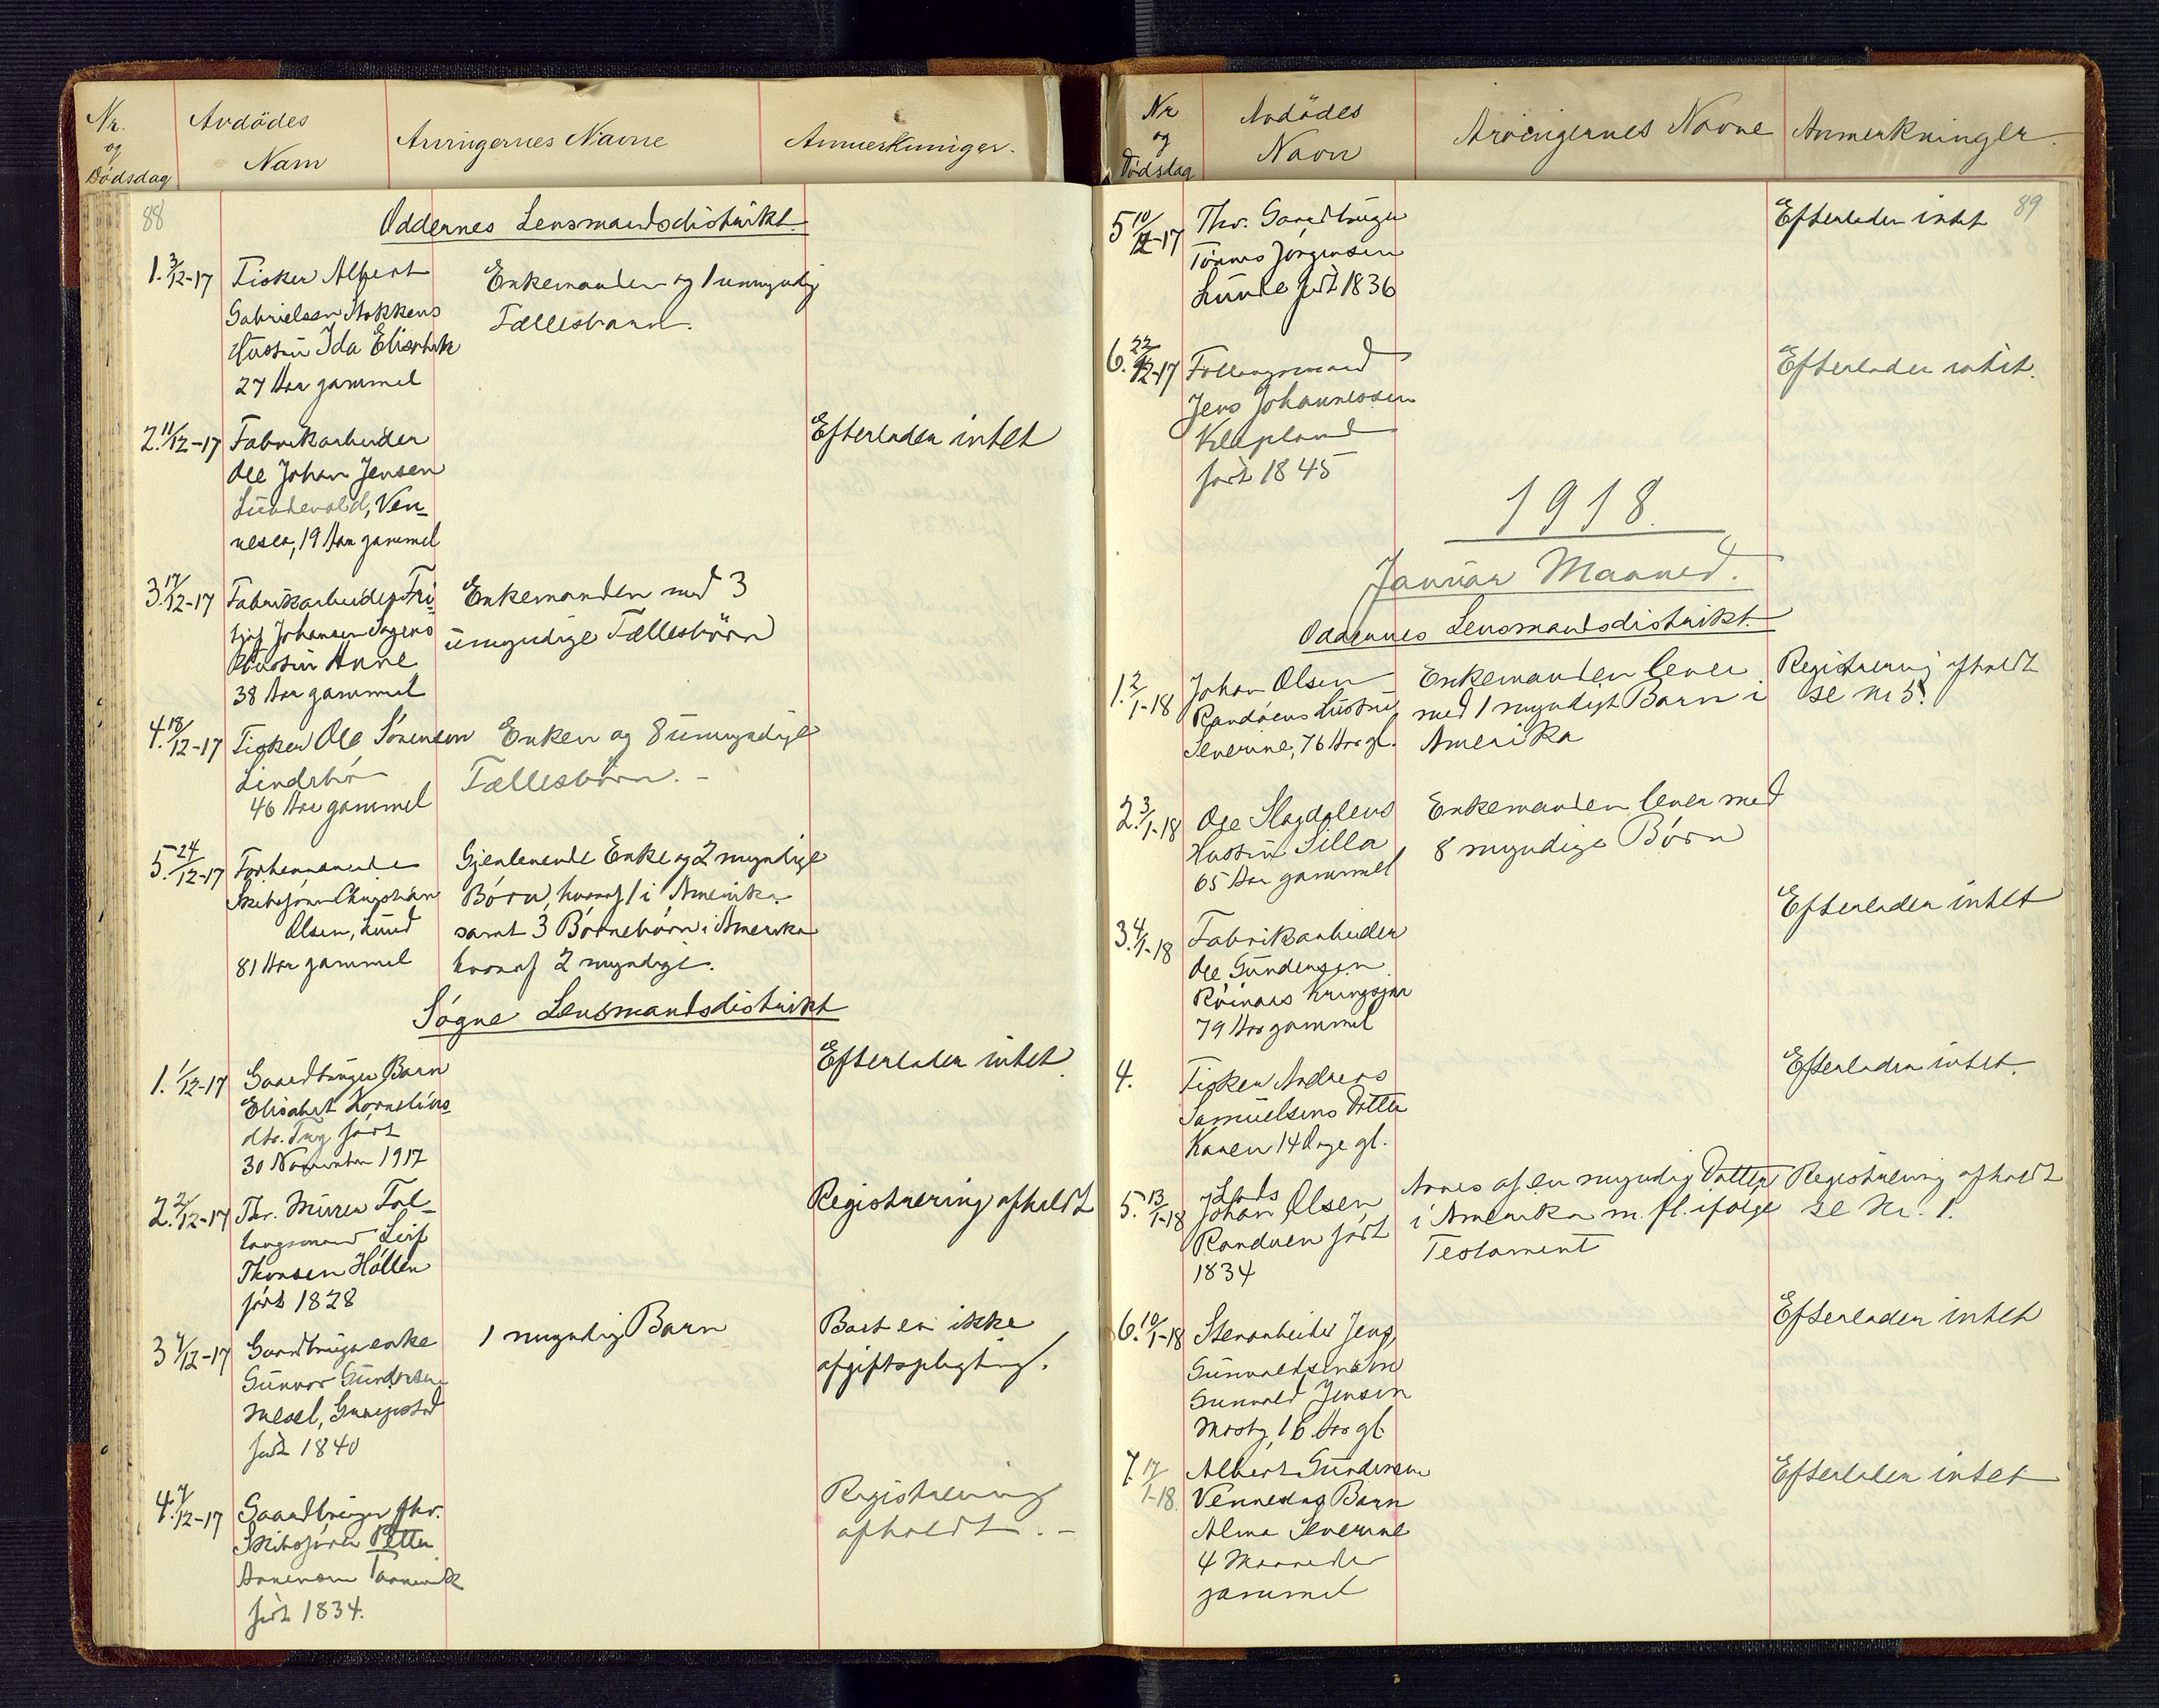 Nr. og Dödsdag
Avdödes Navn
Arvingernes Navne
Anmerkninger.
88
Oddernes Lensmandsdistrikt.
1. 3/12-17 Fisker Albert
Gabrielsen Stokkens
Hustru Ida Elisabeth
27 Aar gammel
Enkemanden og 1 umyndig
Fællesbarn.
2. 11/12-17 Fabrikarbeider
Ole Johan Jensen
Lundevold, Ven-
nesla, 19 Aar gammel
Efterlader intet
3. 17/12-17 Fabrikarbeider Fri-
tjof Johansen
Hustru Anne
38 Aar gammel
Enkemanden med 3
umyndige Fællesbörn
4. 18/12-17 Fisker Ole Sörensen
Lindebö
46 Aar gammel
Enken og 8 umyndige
Fællesbörn. -
5. 24/12-17 Forhenværende
Skibsförer Christian
Olsen, Lund
81 Aar gammel
Gjenlevende Enke og 2 myndige
Börn, hvoraf 1 i Amerika
samt 3 Börnebörn i Amerika
hvoraf 2 myndige.
Sögne Lensmandsdistrikt
1. 1/12-17 Gaardbruger Barn
Elisabet Kornelius-
dtr. Tag född
30 November 1917
Efterlader intet.
2. 2/12-17 Thv. Murer Fol-
langsmand Leif
Thorsen Höllen
född 1828
Registrering afholdt
3 4/12-17 Gaardbrugerenke
Gunvor Gundersen
Mesel, Greipstad
född 1840
1 myndig Barn
Boet er ikke
afgiftspligtig.
4. 7/12-17 Gaardbruger fhv.
Skibsförer Petter
Tarnevik
född 1834.
Registrering
afholdt. -
Nr og Dödsdag
Avdödes Navn
Arvingernes Navne
Anmerkninger.
89
5 10/12-17 Thv. Gaardbruger
Tönnes Jörgensen
Lunde född 1836
Efterlader intet
6. 22/12-17 Follaugsmand
Jens Johannessen
Klepland
född 1845
Efterlader intet.
1918.
Januar Maaned.
Oddernes Lensmandsdistrikt.
1. 2/1-18 Johan Olsen
Randöens Hustru
Severine, 76 Aar gl.
Enkemanden lever
med 1 myndigt Barn i
Amerika
Registrering afholdt
se nr 5.
2. 3/1-18 Ole Slagdalens
Hustru Silla
65 Aar gammel
Enkemanden lever med
8 myndige Börn
3. 4/1-18 Fabrikarbeider
Ole Gundersen
Röinaas Kringsjaa
79 Aar gammel
Efterlader intet
4. Fisker Andreas
Samuelsens Datter
Karen 14 Dage gl.
Efterlader intet.
5. 13/1-18 Lods
Johan Olsen
Randöen född
1834
Arves af en myndig Datter
i Amerika m. fl. ifölge
Testament
Registrering afholdt
se Nr. 1.
6. 10/1-18 Stenarbeider Jens
Gunvaldsens Sön
Gunvald Jensen
Mosby, 16 Aar gl.
Efterlader intet
7. 17/1-18. Albert Gundersen
Venneslas Barn
Alma Severine
4 Maaneder
gammel
Efterlader intet